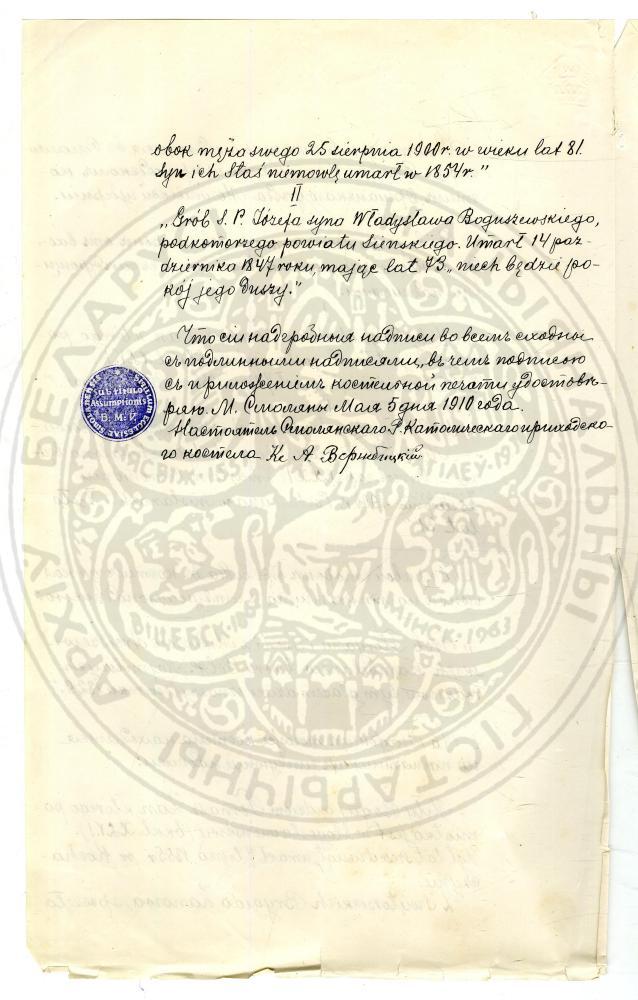 obok męża swego 25 sierpnia 1900r. w wieku lat 81.
Syn ich Staś niemowlę umarł w 1854r."
II
„Grób Ś. P. Józefa syna Władysława Boguszewskiego,
podkomorzego powiatu Sienskiego. Umarł 14 paź-
dziernika 1847 roku, mając lat 73, „niech będzie po-
kój jego duszy."
Что сіи надгробныя надписи во всемъ сходны
съ подлинными надписями, въ чемъ подписью
съ приложеніемъ костельной печати удостовѣ-
ряю. М. Смоляны Мая 5 дня 1910 года.
Настоятель Смолянскаго Р. Католическаго приходска-
го костела Кс. А.
sub titulo
Assumptionis
B. M. V.
ВІЦЕБСК
МІНСК · 1963
ГІСТАРЫЧНЫ
АРХІЎ